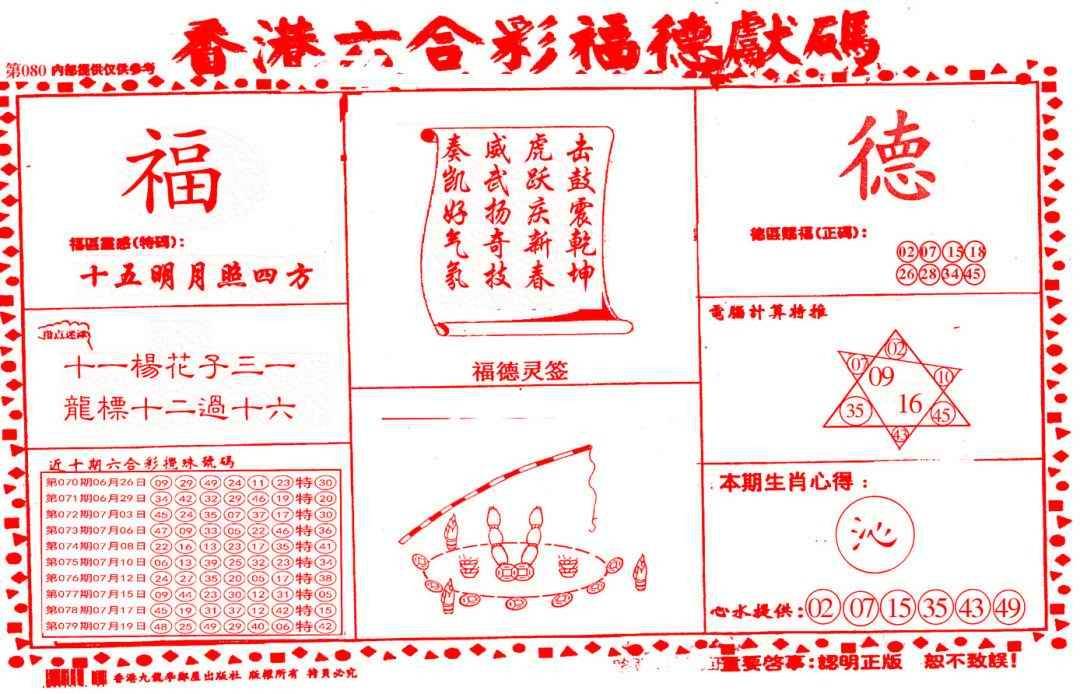 香港六合彩福德獻碼
第080 内部提供仅供参考
福
福區靈感(特碼):
十五明月照四方
十一楊花子三一
龍標十二過十六
近十期六合彩攪珠號碼
第070期06月26日 09 29 49 24 11 23 特 30
第071期06月29日 34 42 32 29 46 19 特 20
第072期07月03日 45 24 35 07 37 17 特 30
第073期07月06日 47 09 33 05 22 46 特 36
第074期07月08日 22 16 13 23 17 35 特 41
第075期07月10日 06 13 39 25 32 23 特 34
第076期07月12日 24 27 35 20 05 17 特 38
第077期07月15日 09 44 23 30 12 31 特 05
第078期07月17日 45 19 31 37 12 42 特 15
第079期07月19日 48 25 49 29 40 06 特 42
击鼓震乾坤
虎跃庆新春
威武扬奇技
奏凯好气氛
福德灵签
德
德區賜福(正碼):
02 07 15 18
26 28 34 45
電腦計算特推
02
07 10
09
16
35 45
43
本期生肖心得:
沁
心水提供: 02 07 15 35 43 49
香港九龍 出版社 版權所有
重要啓事:認明正版 恕不致誤!